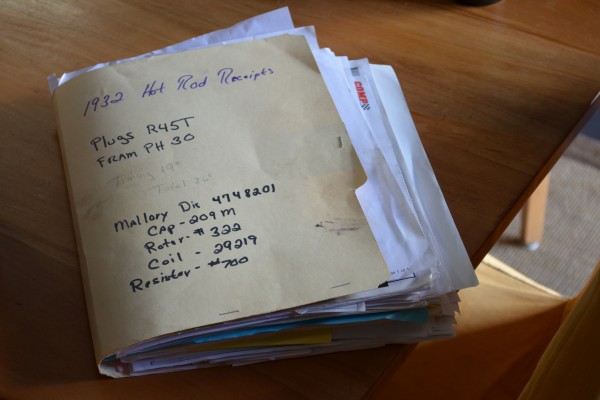 1932 Hot Rod Receipts
Plugs R45T
FRAM PH 30
Timing 19°
Total 36°
Mallory Dis 4748201
CAP - 209 M
Rotor - # 322
Coil - 29219
Resister - #700
COMP